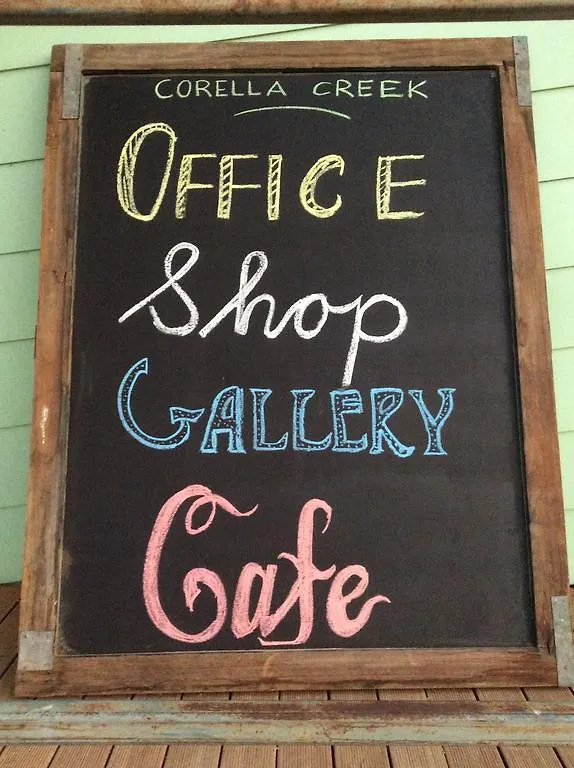 CORELLA CREEK
OFFICE
Shop
GALLERY
Cafe